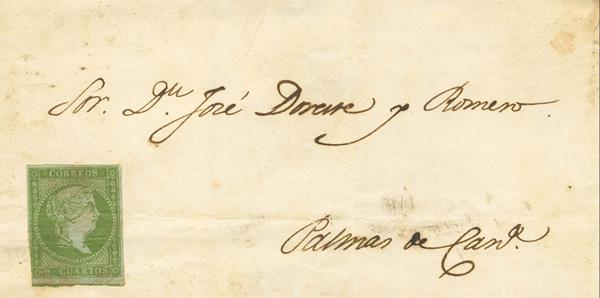 Sor. Dn. José Doreste y Romero.
CORREOS
2 CUARTOS
Palmas de Cana.